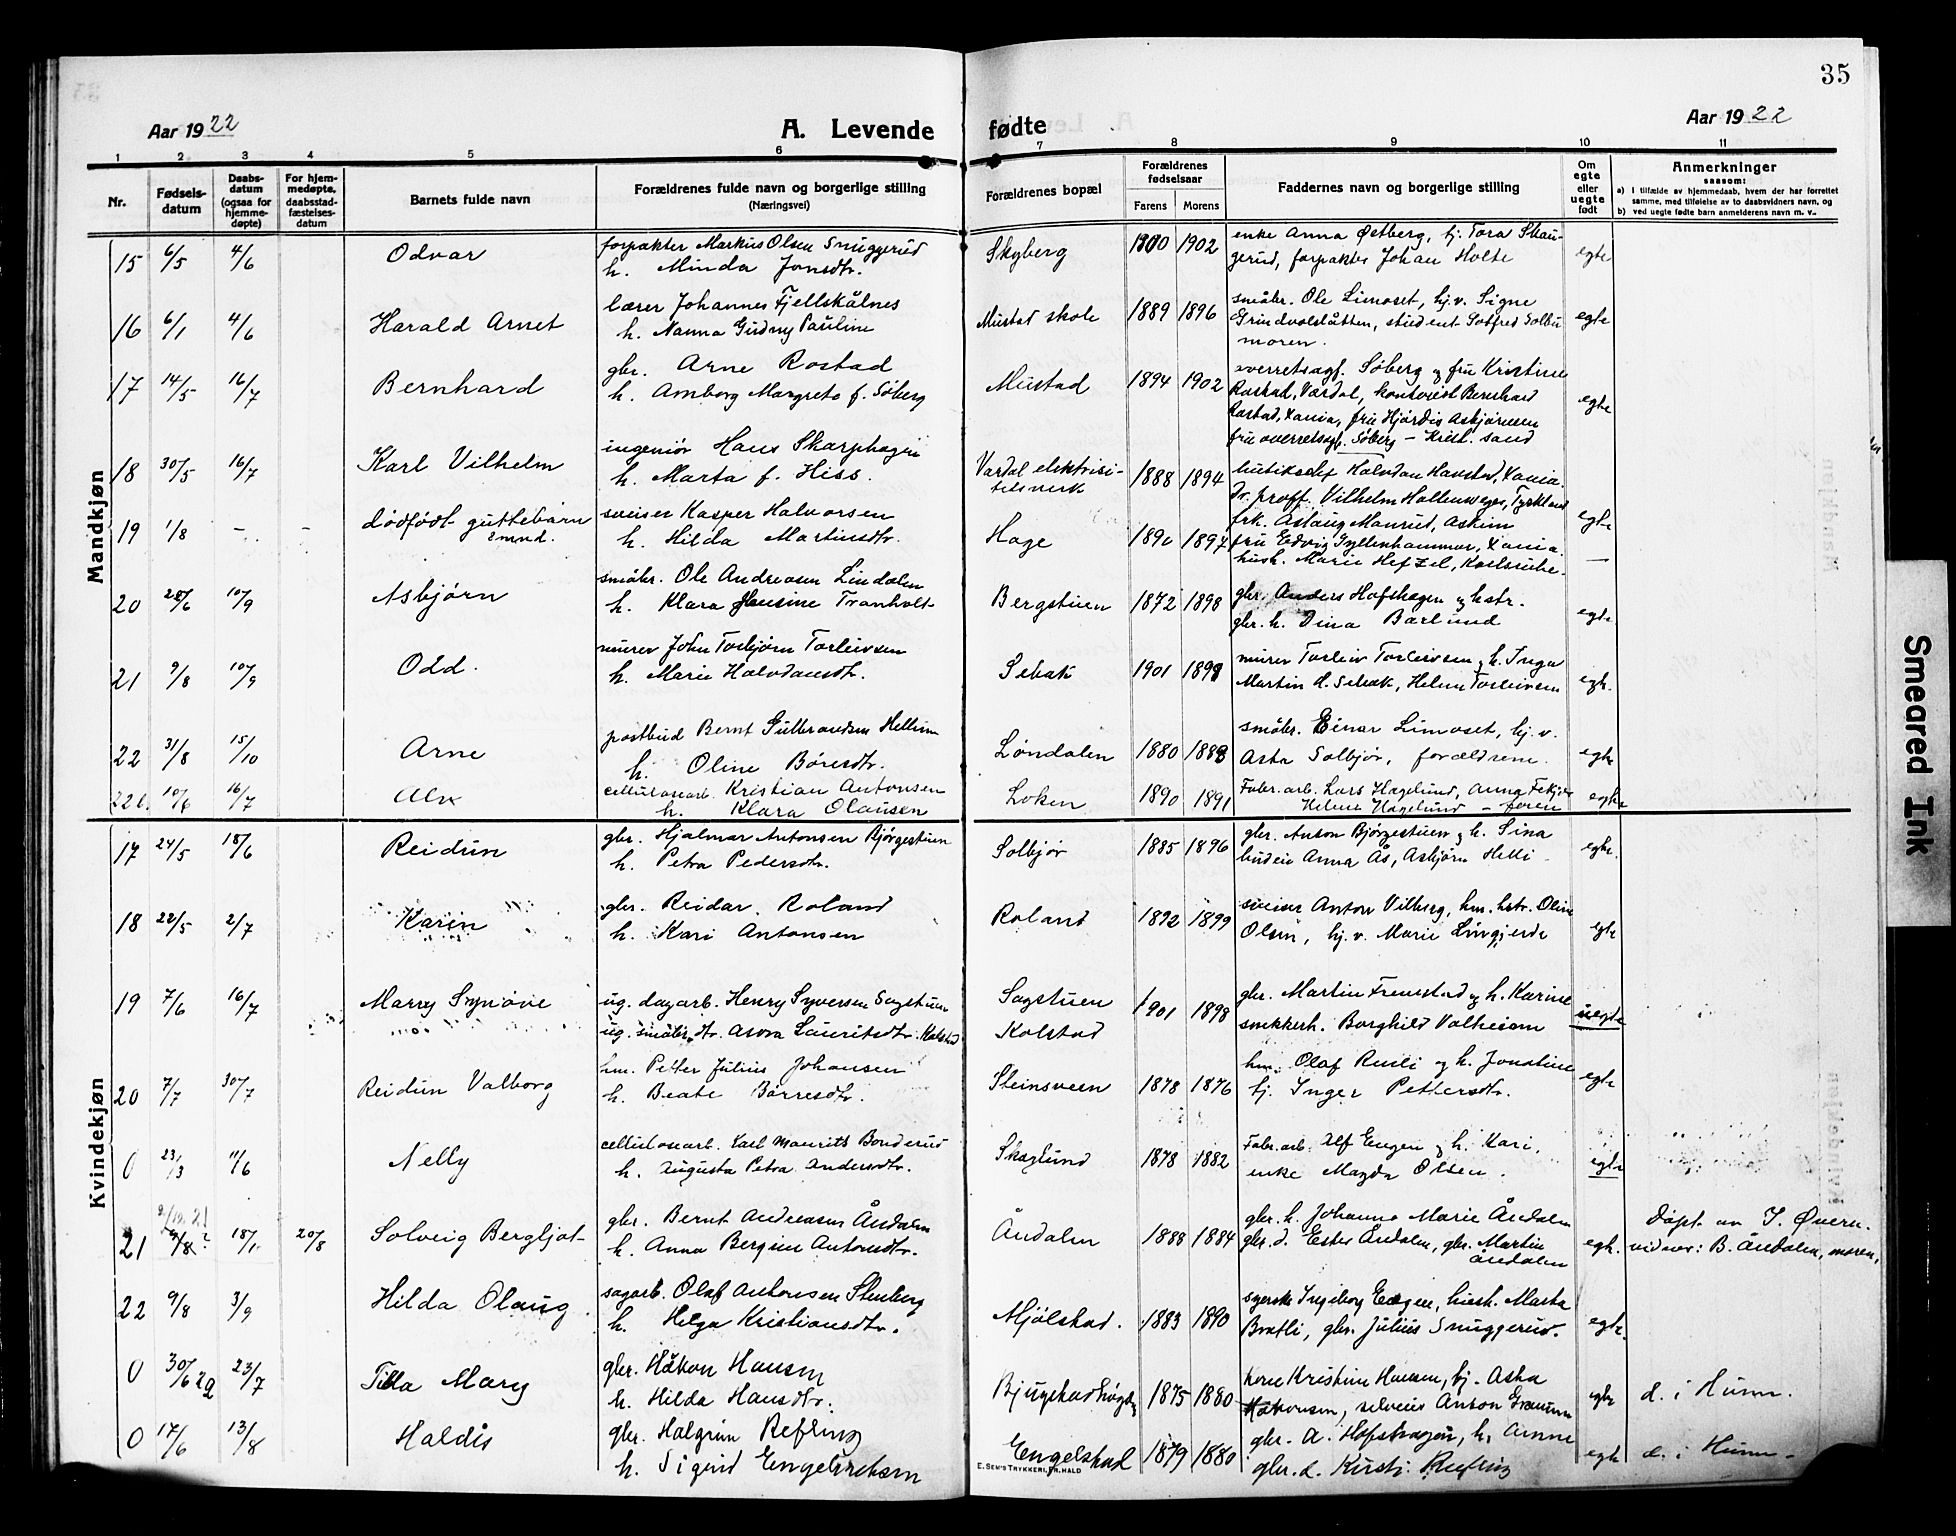 35
Aar 1922
A. Levende fødte
Aar 1922
1 2 3 4 5 6 7 8 9 10 11
Nr.
Fødsels-
datum
Daabs-
datum
(ogsaa for
hjemme-
døpte)
For hjem-
medøpte,
daabsstad-
fæstelses-
datum
Barnets fulde navn
Forældrenes fulde navn og borgerlige stilling
(Næringsvei)
Forældrenes bopæl
Forældrenes
fødselsaar
Farens Morens
Faddernes navn og borgerlige stilling
Om
egte
eller
uegte
født
Anmerkninger
saasom:
a) i tilfælde av hjemmedaab, hvem der har forrettet
samme, med tilføielse av to daabsvidners navn, og
b) ved uegte fødte barn anmelderens navn m. v.
Mandkjøn
15 6/5 4/6 Odvar
forpakter Markus Olsen Snuggerud
h. Minda Jonsdtr.
Skyberg 1900 1902
enke Anna Østberg, tj. Tora Skau-
gerud, forpakter Johan Holte
egte
16 6/1 4/6 Harald Arnet
lærer Johannes Fjellskålnes
h. Nanna Gudny Pauline
Mustad skole 1889 1896
småbr. Ole Limoset, hj.v. Signe
Grindvolslåtten, student Solbu
moren.
egte
17 14/5 16/7 Bernhard
gbr. Arne Rostad
h. Margrete f. Søberg
Mustad 1894 1902
overretsagf. Søberg og fru Kristine
Rostad, Vardal, kontorist Bernhard
Rostad, Xania, fru Hjørdis Asbjørnsen
fru overretsagf. Søberg – Krist. sand
egte
18 30/5 16/7 Karl Vilhelm
ingeniør Hans Skarphagen
h. Marta f. Hiss.
Vardal elektrisi-
tetsverk 1888 1894
butikschef Halvdan Havstad, Xania.
Dr. proff. Vilhelm Hollenweger, Tyskland
frk. Aslaug Maurud, Askim
fru Edvig Gyllenhammer, Xania.
hush. Marie Hefzel, Karlsruhe.
egte
19 1/8 – – dødfødt guttebarn
Hage 1890 1897
sveiser Kasper Halvorsen
h. Hilda Martinsdtr.
—
20 28/6 10/9 Asbjørn
småbr. Ole Andreasen Lindalen
h. Klara Tranholt
Bergstuen 1872 1898
gbr. Anders Hofshagen og hstr.
gbr. h. Dina Barlund
egte
21 9/8 10/9 Odd.
murer John Torbjørn Torleivsen
h. Marie Halvdansdtr.
Sebak 1901 1899
murer Torleiv Torleivsen og h. Inga
Martin d. Sebak, Helene Torleivsen
egte.
22 31/8 15/10 Arne
postbud Bernt Gulbrandsen Hellium
h. Oline Børresdtr.
Løndalen 1880 1888
småbr. Einar Limoset, hj. v.
Asta Solbjør, forældrene.
egte
22b. 10/6 16/7 Alv
cellulosearb. Kristian Antonsen
h. Klara Olausen
Løken 1890 1891
Fabr. arb. Lars Hagelund, Anna
Helene Hagelund – faren
egte
Kvindekjøn
17 24/5 18/6 Reidun
gbr. Hjalmar Antonsen Bjørgestuen
h. Petra Pedersdtr.
Solbjør 1885 1896
gbr. Anton Bjørgestuen og h. Sina
budeie Anna Ås, Asbjørn Helli
egte.
18 22/5 2/7 Karin
gbr. Reidar Roland
h. Kari Antonsen
Roland 1892 1899
sveiser Anton Vilberg, hm. hstr. Oline
Olsen, hj. v. Marie Lingjerde
egte
19 7/6 16/7 Marry Synøve
ug. dagarb. Henry Syversen Sagstuen
ug. småbr. dtr. Asora Lauritsdtr. Kolstad
Sagstuen
Kolstad
1901 1898
gbr. Martin Fremstad og h. Karine
snekkerh. Borghild Valheiom
uegte
20 7/7 30/7 Reidun Valborg
hm. Petter Julius Johansen
h. Beate Børresdtr.
Steinsveen 1878 1876
hm. Olaf Rusli og h. Jonetine
tj. Inger Pettersdtr.
egte
0 23/3 11/6 Nelly
cellulosearb. Karl Maurits Bonderud
h. Augusta Petra Andersdtr.
Skaglund 1878 1882
Fabr. arb. Alf Engen og h. Kari,
enke Magda Olsen.
egte
21 9/8? 18/1 20/8 Solveig Bergljot
gbr. Bernt Andreasen Åndalen
h. Anna Bergine Antonsdtr.
Åndalen 1888 1884
gbr. h. Johanne Marie Åndalen
gbr. d. Ester Åndalen, gbr. Martin
Åndalen
egte.
Døpt av J. Øvern.
vidner: B. Åndalen, moren,
22 9/8 3/9 Hilda Olaug.
sagarb. Olaf Antonsen Stenberg
h. Helga Kristiansdtr.
Mjølstad. 1883 1890
syerske Ingeborg Engen, hush. Marta
Bratli, gbr. Julius Snuggerud.
egte.
0 30/6 22 23/7 Tilla Mary
gbr. Håkon Hansen
h. Hilda Hansdtr.
1875 1880
Kristine Hansen, tj. Asta
Håkonsen, sveiser Anton
egte
d. i Hunn.
0 17/6 13/8 Haldis
gbr. Halgrim Refling
h. Sigrid Engebretsen
Engelstad 1879 1880
gbr. A. Hofshagen, h. Anne
gbr. d. Kirsti Refling
egte
d. i Hunn –
E. Sem's Trykkeri, Fr.hald
Smeared Ink